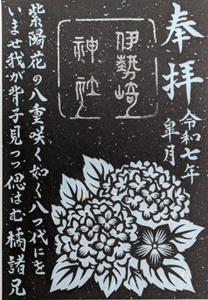 奉拝
令和七年
皐月
伊勢崎
神社
紫陽花の八重咲く如く八つ代にを
いませ我が背子見つつ偲はむ 橘諸兄